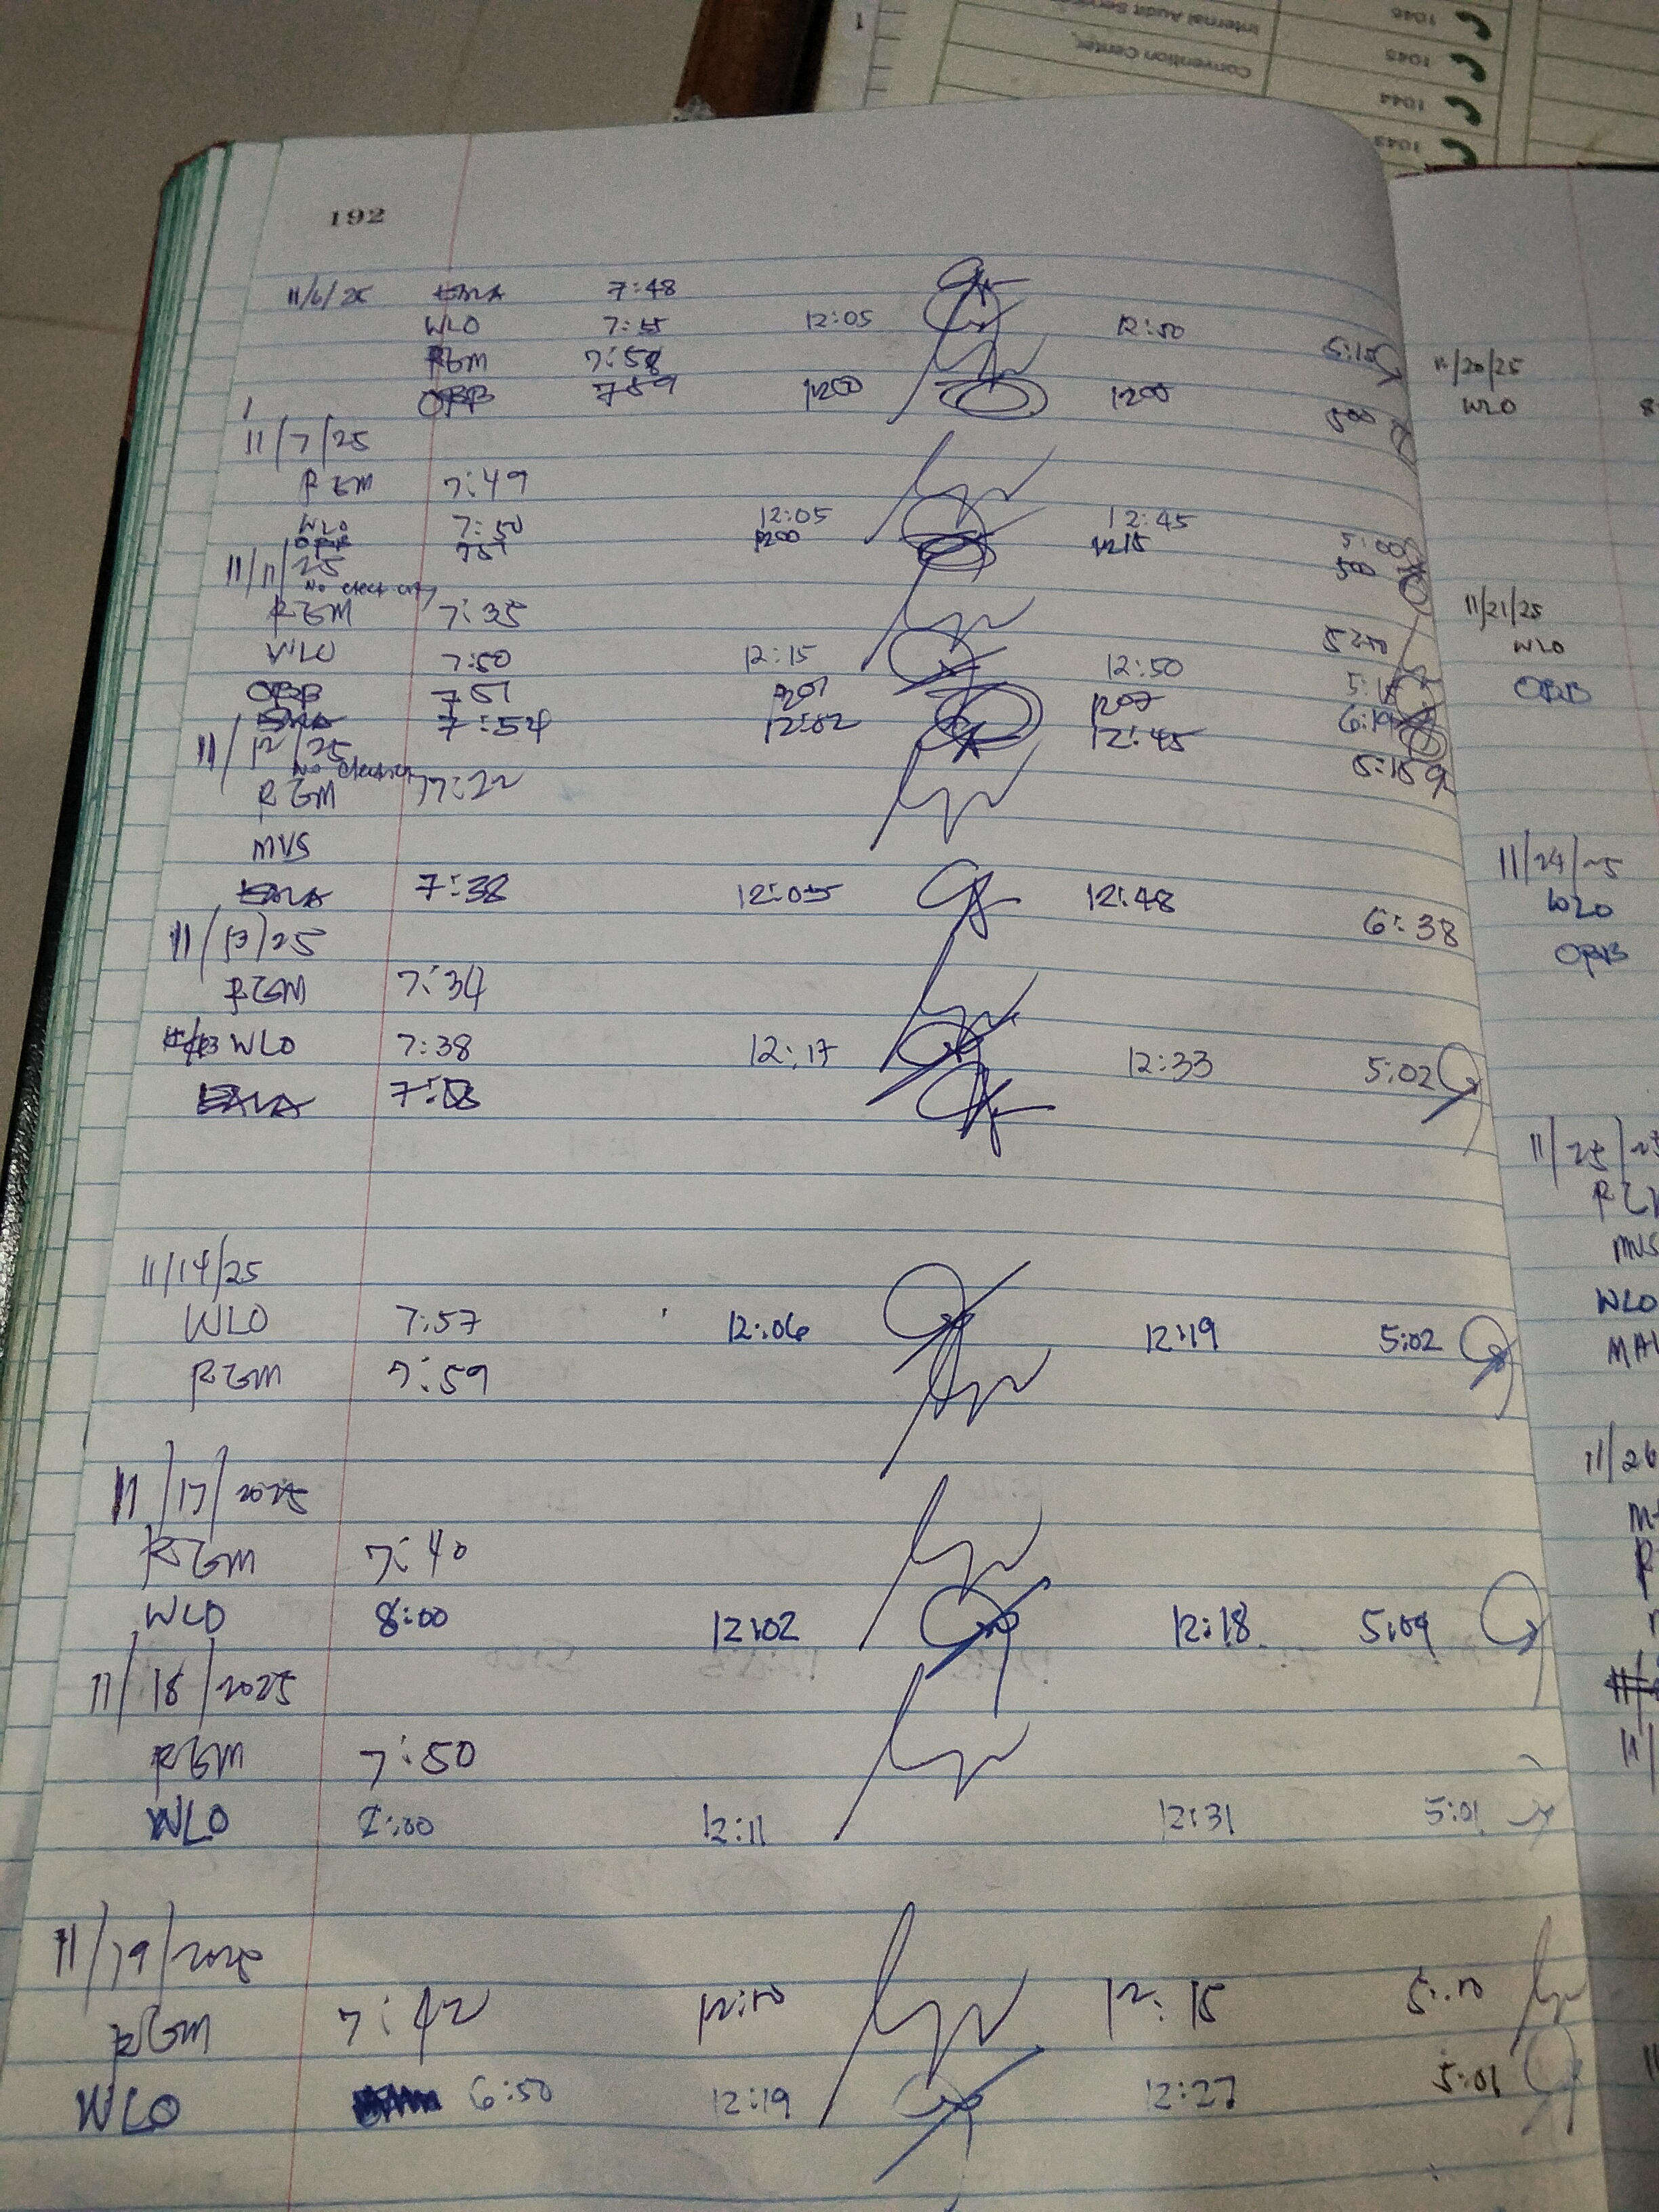 1046
Internal Audit Service
1045
Convention Center,
1044
1043
1
192
11/6/25 7:48
WLO 7:55 12:05 12:50 5:15
RGM 7:58
OBB 759 1200 1200 500
11/7/25
RGM 7:49
WLO 7:50 12:05 12:45 5:00
OBB 757 1200 1215 500
11/11/25
No electricity
RGM 7:35
WLO 7:50 12:15 12:50 5:15
OBB 757 1201 1207
7:54 12:02 12:45 5:15
11/12/25
No
RGM 7:22
MVS
7:38 12:05 12:48 6:38
11/13/25
RGM 7:34
WLO 7:38 12:17 12:33 5:02
11/14/25
WLO 7:57 12:06 12:19 5:02
RGM 7:59
11/17/2025
RGM 7:40
WLO 8:00 12:02 12:18 5:09
11/18/2025
RGM 7:50
WLO 8:00 12:11 12:31 5:01
11/19/2025
RGM 7:42 12:10 12:15 5:10
WLO 6:50 12:19 12:27 5:01
11/20/25
WLO 8
11/21/25
WLO
OBB
11/24/25
WLO
OBB
11/25/25
MVS
WLO
11/26